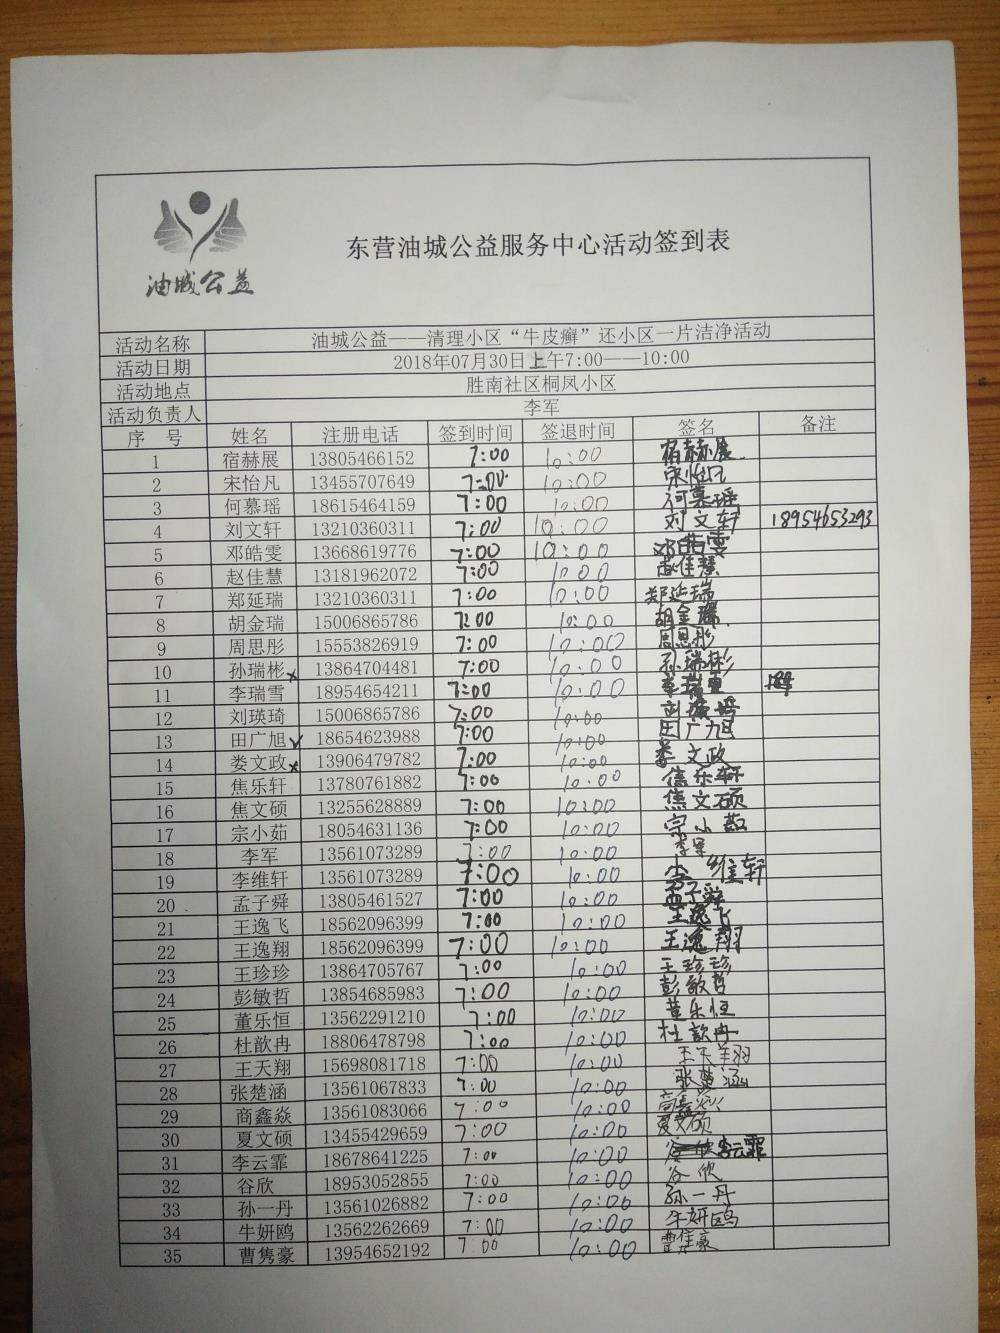 油城公益
东营油城公益服务中心活动签到表
活动名称 油城公益——清理小区“牛皮癣”还小区一片洁净活动
活动日期 2018年07月30日上午7:00——10:00
活动地点 胜南社区桐凤小区
活动负责人 李军
序 号 姓名 注册电话 签到时间 签退时间 签名 备注
1 宿赫展 13805466152 7:00 10:00 宿赫展
2 宋怡凡 13455707649 7:00 10:00 宋怡凡
3 何慕瑶 18615464159 7:00 10:00 何慕瑶
4 刘文轩 13210360311 7:00 10:00 刘文轩 18954653293
5 邓皓雯 13668619776 7:00 10:00 邓皓雯
6 赵佳慧 13181962072 7:00 10:00 赵佳慧
7 郑延瑞 13210360311 7:00 10:00 郑延瑞
8 胡金瑞 15006865786 7:00 10:00 胡金瑞
9 周思彤 15553826919 7:00 10:00 周思彤
10 孙瑞彬x 13864704481 7:00 10:00 孙瑞彬
11 李瑞雪 18954654211 7:00 10:00 李瑞雪
12 刘瑛琦 15006865786 7:00 10:00
13 田广旭✓ 18654623988 7:00 10:00 田广旭
14 娄文政x 13906479782 7:00 10:00 娄文政
15 焦乐轩 13780761882 7:00 10:00 焦乐轩
16 焦文硕 13255628889 7:00 10:00 焦文硕
17 宗小茹 18054631136 7:00 10:00 宗小茹
18 李军 13561073289 7:00 10:00 李军
19 李维轩 13561073289 7:00 10:00 李维轩
20 孟子舜 13805461527 7:00 10:00 孟子舜
21 王逸飞 18562096399 7:00 10:00 王逸飞
22 王逸翔 18562096399 7:00 10:00 王逸翔
23 王珍珍 13864705767 7:00 10:00 王珍珍
24 彭敏哲 13854685983 7:00 10:00 彭敏哲
25 董乐恒 13562291210 7:00 10:00 董乐恒
26 杜歆冉 18806478798 7:00 10:00 杜歆冉
27 王天翔 15698081718 7:00 10:00 王天翔
28 张楚涵 13561067833 7:00 10:00 张楚涵
29 商鑫焱 13561083066 7:00 10:00 商鑫焱
30 夏文硕 13455429659 7:00 10:00 夏文硕
31 李云霏 18678641225 7:00 10:00 李云霏
32 谷欣 18953052855 7:00 10:00 谷欣
33 孙一丹 13561026882 7:00 10:00 孙一丹
34 牛妍鸥 13562262669 7:00 10:00 牛妍鸥
35 曹隽豪 13954652192 7:00 10:00 曹隽豪